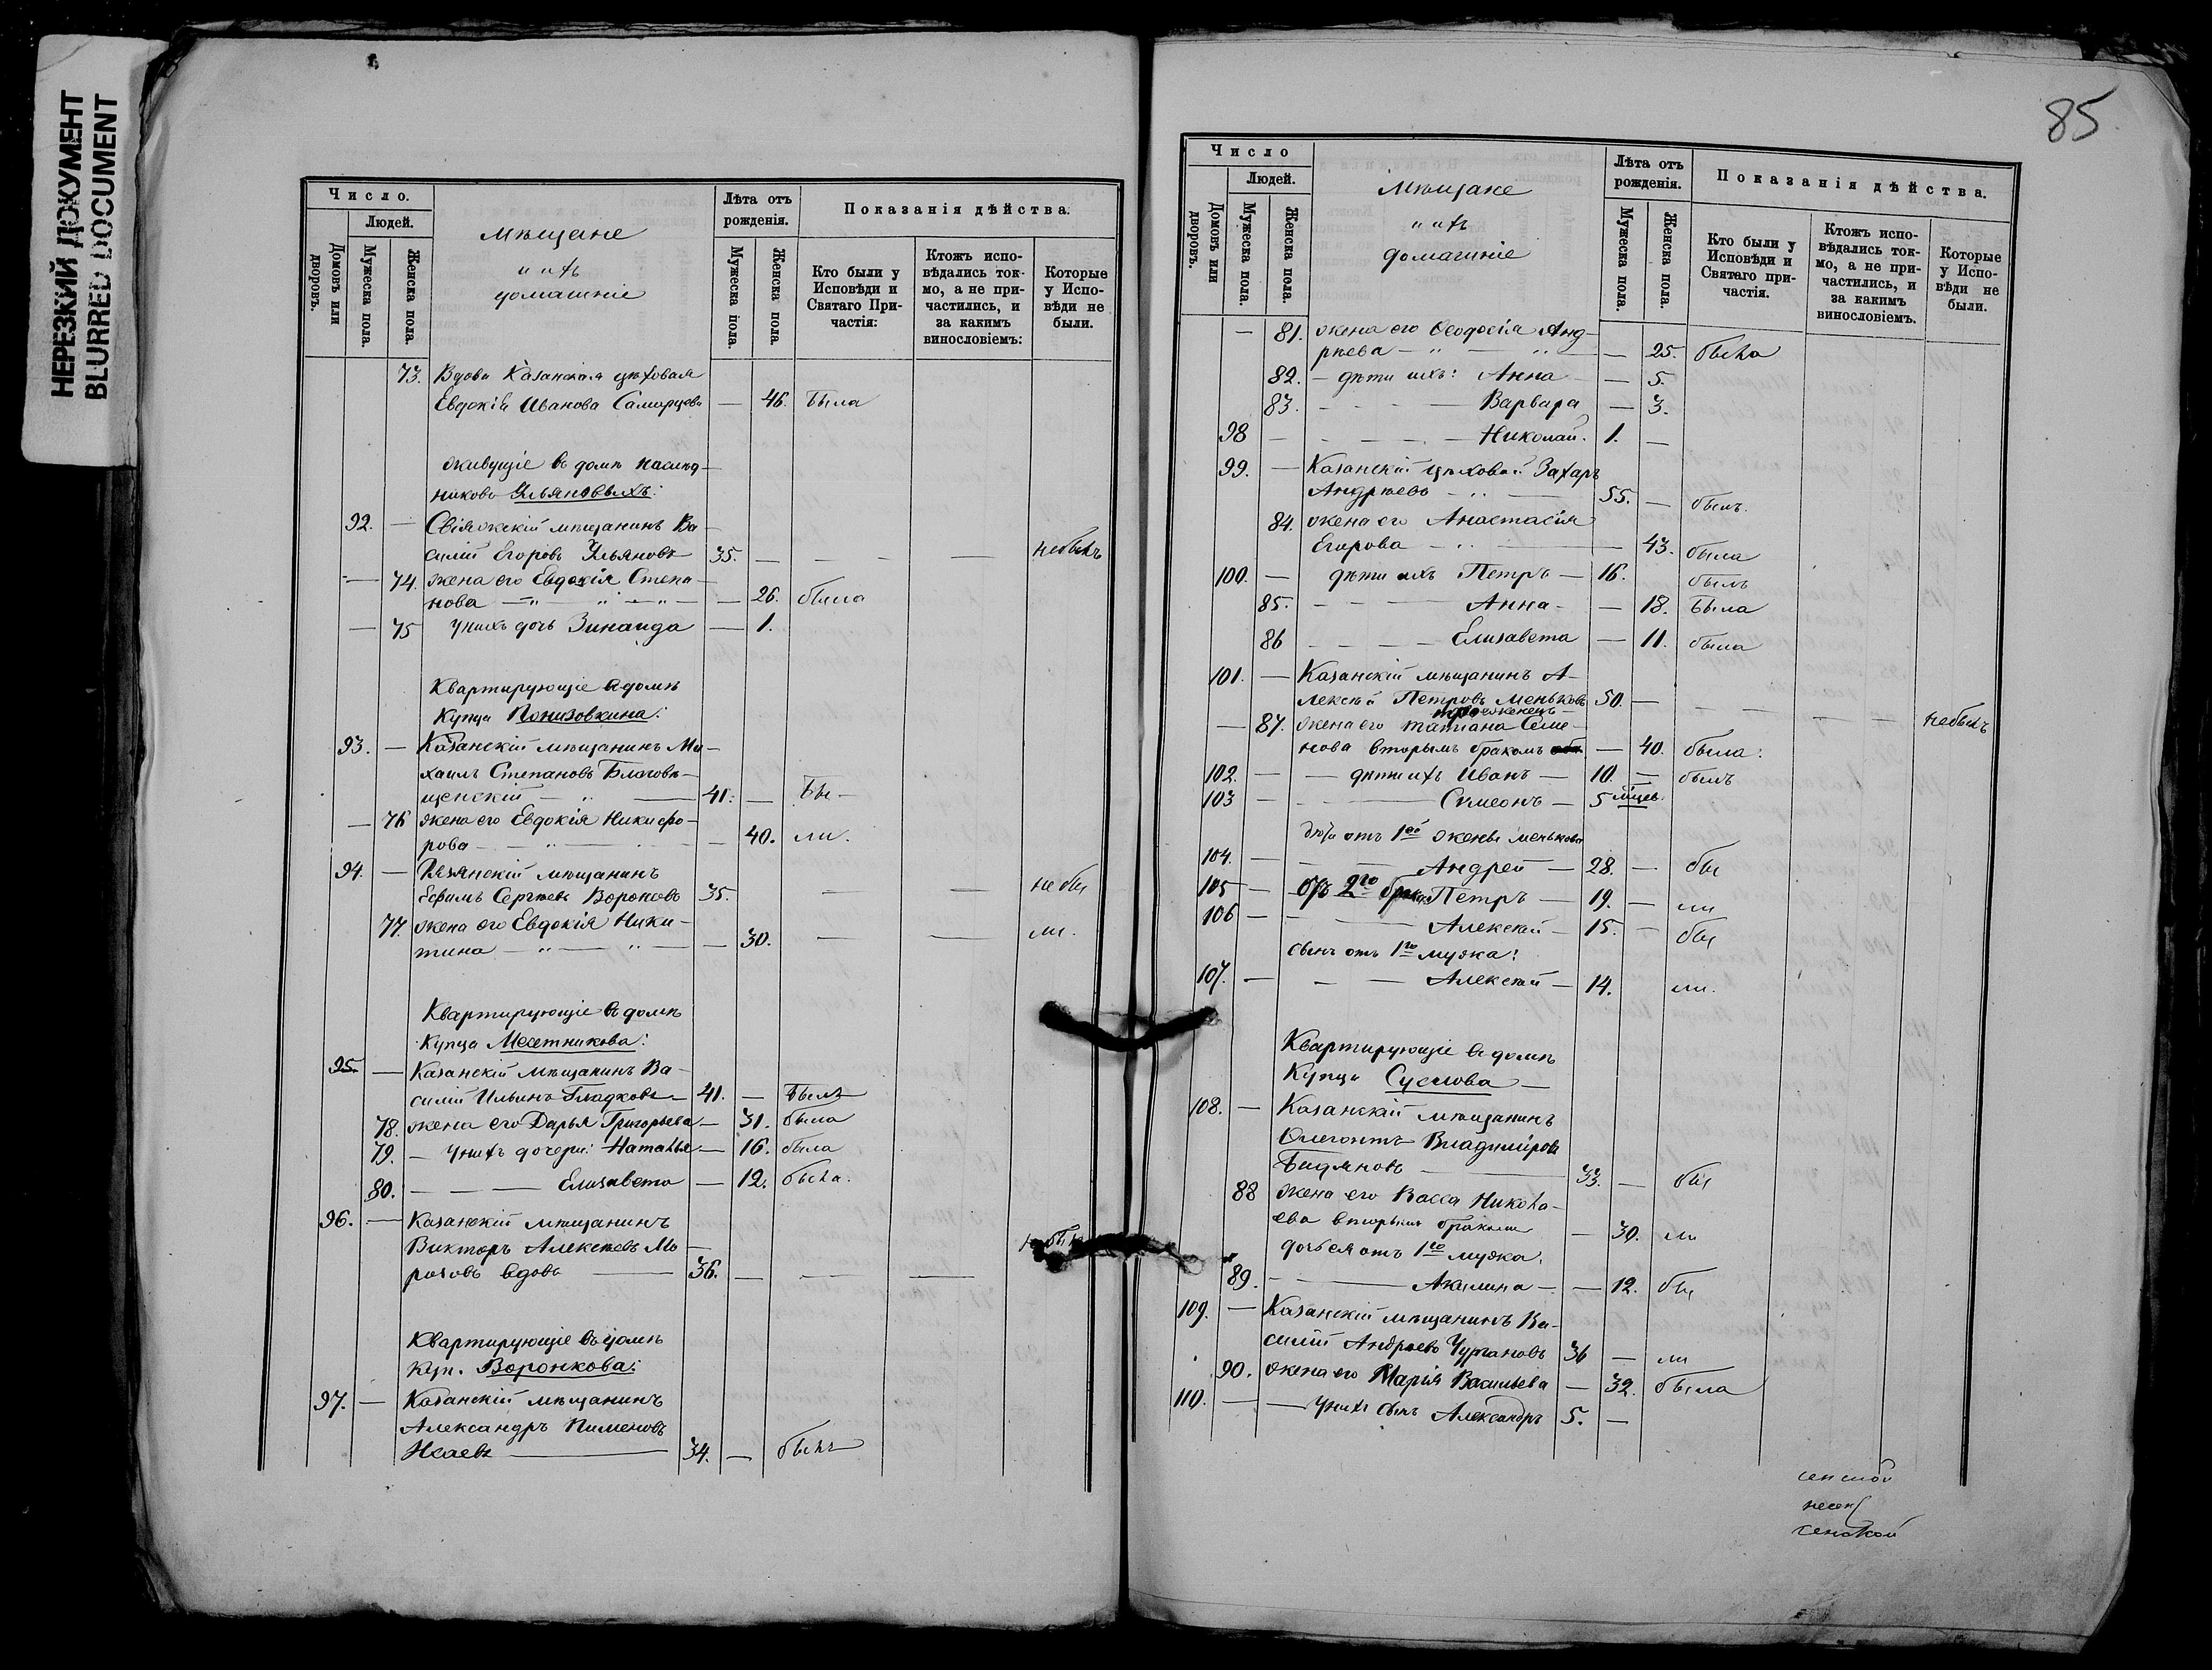 НЕРЕЗКИЙ ДОКУМЕНТ
BLURRED DOCUMENT
Число.
Людей.
Домовъ или дворовъ.
Мужеска пола.
Женска пола.
Мѣщане
и ихъ
домашніе
Лѣта отъ рожденія.
Мужеска пола.
Женска пола.
Показанія дѣйства.
Кто были у Исповѣди и Святаго Причастія:
Ктожъ исповѣдались токмо, а не причастились, и за какимъ винословіемъ:
Которые у Исповѣди не были.
73. Вдова Казанская цѣховая
Евдокія Иванова Самарцева — 46. Была
живущіе въ домѣ наслѣд-
никовъ Ульяновыхъ:
92. — Свіяжскій мѣщанинъ Ва-
силій Егоровъ Ульяновъ 35. — — — небылъ
— 74. жена его Евдокія Степа-
нова — " — " — " — — 26. была
— 75 у нихъ дочь Зинаида — 1.
Квартирующіе в домѣ
Купца Понизовкина:
93. — Казанскій мѣщанинъ Ми-
хаилъ Степановъ Благовѣ-
щенскій — " — 41. — Бы-
— 76 жена его Евдокія Никифо-
рова — " — — 40. ли.
94. — Рязанскій мѣщанинъ
Ефимъ Сергѣевъ Вороновъ 35. — — не бы
77. жена его Евдокія Ники-
тина — " — " — — 30. — — ли.
Квартирующіе въ домѣ
Купца Месетникова:
95. — Казанскій мѣщанинъ Ва-
силій Ильинъ Гладковъ — 41. — Былъ
78. жена его Дарья Григорьева — 31. была
79. — у нихъ дочери: Наталья — 16. была
80. — — — Елизавета — 12. была.
96. — Казанскій мѣщанинъ
Викторъ Алексѣевъ Мо-
розовъ вдовъ — 36. — — —
Квартирующіе въ домѣ
Куп. Воронкова:
97. — Казанскій мѣщанинъ
Александръ Пименовъ
Исаевъ — 34. — былъ
85
Число
Людей.
Домовъ или дворовъ.
Мужеска пола.
Женска пола.
Мѣщане
и ихъ
домашніе
Лѣта отъ рожденія.
Мужеска пола.
Женска пола.
Показанія дѣйства.
Кто были у Исповѣди и Святаго причастія.
Ктожъ исповѣдались токмо, а не причастились, и за какимъ винословіемъ.
Которые у Исповѣди не были.
— 81. жена его Ѳеодосія Анд-
рѣева — " — " — — 25. была
82. — дѣти ихъ: Анна — — 5.
83. — — — Варвара — 3.
98 — — — — Николай. 1. —
99. — Казанскій цѣховой Захаръ
Андрѣевъ — " — 55. — былъ.
84. жена его Анастасія
Егорова — " — 43. была
100. — дѣти ихъ Петръ — 16. былъ
85. — — — Анна — — 18. Была
86 — — — Елизавета — 11. была
101. — Казанскій мѣщанинъ А-
лексѣй Петровъ Меньковъ 50. — — — — небылъ
троеженецъ
— 87. жена его Татіана Семе-
нова вторымъ бракомъ — 40. была.
102. — — дѣти ихъ Иванъ — 10. — былъ
103 — — — Симеонъ — 5 мѣцев.
дѣти отъ 1ой жены Менькова
104. — — — Андрей — 28. — бы
105 — Отъ 2го брака Петръ — 19. — ли
106 — — — Алексѣй — 15. — бы
сынъ отъ 1го мужа:
107. — — — Алексѣй — 14. ли.
Квартирующіе в домѣ
Купца Суслова —
108. — Казанскій мѣщанинъ
Владиміровъ
33. — бы
88 жена его Васса Никола-
ева вторымъ бракомъ — 30. ли
дочь ея отъ 1го мужа.
89. — — Акилина — — 12. бы
109. — Казанскій мѣщанинъ Ва-
силій Андрѣевъ Чургановъ 36 — ли
90. жена его Марія Васильева — 32. была
110. — — у нихъ сынъ Александръ 5. —